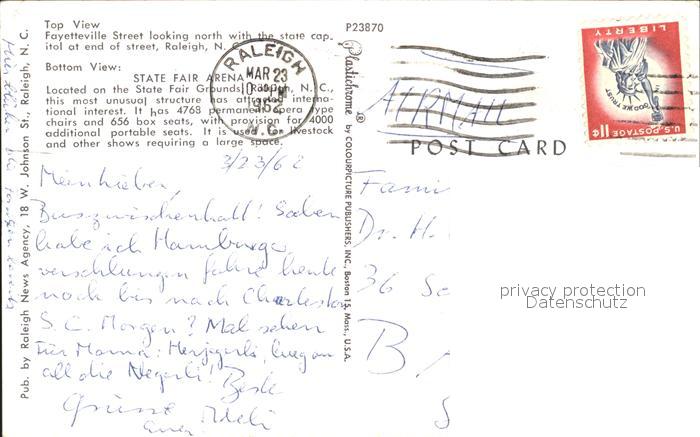 Top View
Fayetteville Street looking north with the state cap-
itol at end of street, Raleigh, N. C.
Bottom View:
STATE FAIR ARENA
Located on the State Fair Grounds, Raleigh, N. C.,
this most unusual structure has attracted interna-
tional interest. It has 4768 permanent opera type
chairs and 656 box seats, with provision for 4000
additional portable seats. It is used for livestock
and other shows requiring a large space.
RALEIGH
MAR 23
1962
N.C.
3/23/62
Mein lieber,
Buszwischenhalt! Soeben
habe ich Hamburger
verschlungen fahre heute
noch bis nach Charleston
S. C. Morgen? Mal sehen
Für Mama: Herrjegerli, lueg au
all die Negerli! Beste
Grüsse Ueli
Pub. by Raleigh News Agency, 18 W. Johnson St., Raleigh, N. C.
P23870
Plastichrome ® by COLOURPICTURE PUBLISHERS, INC., Boston 15, Mass., U.S.A.
AIRMAIL
POST CARD
LIBERTY
IN GOD WE TRUST
U.S. POSTAGE 11¢
Fami
Dr. H.
36 Sc
B
privacy protection
Datenschutz